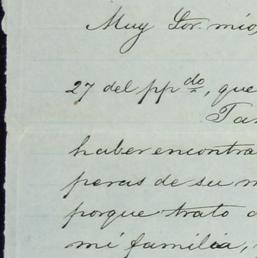 Muy Sor. mio,
27 del pp.do, que
Ta
haber encontra
peras de su m
porque trato d
mi familia,